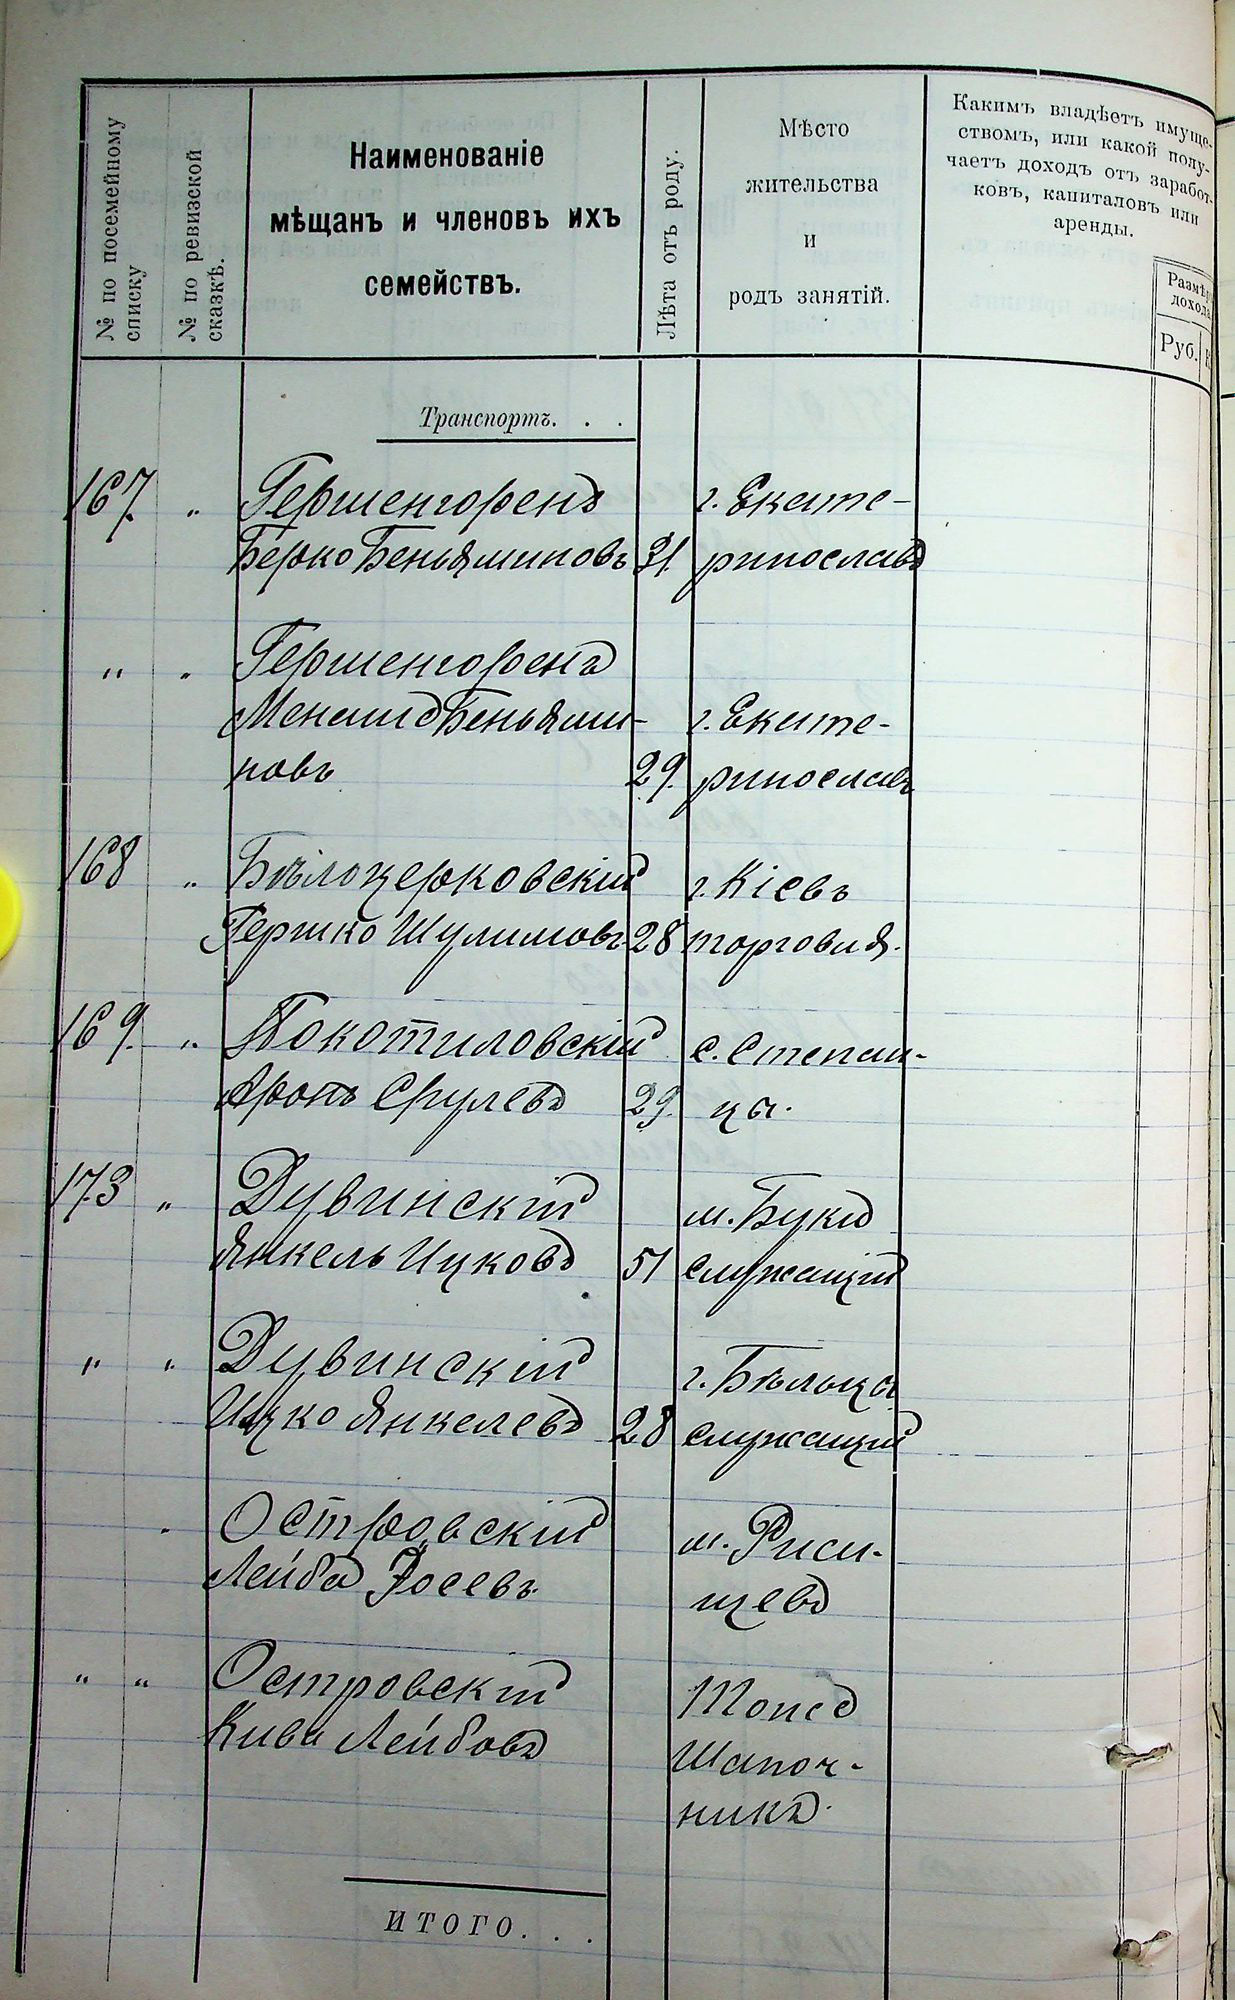 № по посемейному
списку
№ по ревизской
сказкѣ.
Наименованіе
мѣщанъ и членовъ ихъ
семействъ.
Лѣта отъ роду.
Мѣсто
жительства
и
родъ занятій.
Какимъ владѣетъ имуще-
ствомъ, или какой полу-
чаетъ доходъ отъ заработ-
ковъ, капиталовъ или
аренды.
Размѣръ
дохода.
Руб.
Транспортъ. . .
167. „ Гершенгоренъ г. Екате-
Берко Беньяминовъ 31. ринославъ
„ „ Гершенгоренъ
Менашъ Беньями- г. Екате-
новъ 29. ринославъ
168 „ Бѣлоцерковскій г. Кіевъ
Гершко Шулимовъ 28 торговля.
169. „ Покотиловскій с. Степан-
Аронъ Срулевъ 29. цы.
173 „ Дувинскій м. Буки
Янкель Ицковъ 51 служащій
„ „ Дувинскій г. Бѣльцы
Ицко Янкелевъ 28 служащій
Островскій м. Риси-
Лейба Іосевъ щевъ
„ „ Островскій Тоже
Кива Лейбовъ Шапоч-
никъ.
ИТОГО. . .